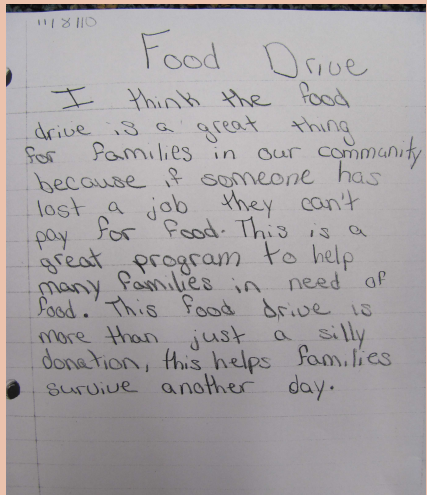 11/8/10
Food Drive
I think the food
drive is a great thing
for families in our community
because if someone has
lost a job they can't
pay for food. This is a
great program to help
many families in need of
food. This food drive is
more than just a silly
donation, this helps families
survive another day.